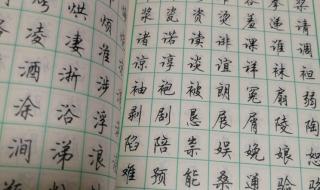 烘 烦
凌 凄 淮
酒 浙 涉
涂 浴 浮
涧 涕 浪
浆 瓷 资 恣
诸 诺 读 诽 课 谁 调
谅 谆 谈 谊 祥 袜 袒
袖 袍 被 朗 冤 扇 弱
剥 剧 恳 展 屑 陵 陶
陷 陪 祟 娱 娩 娘
难 预 能 桑 通 验